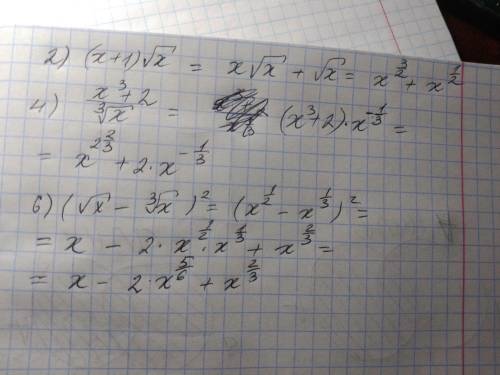 2) (x+1)√x = x√x + √x = x^(3/2) + x^(1/2)
4) (x³+2)/∛x = (x³+2)·x^(-1/3) =
= x^(2 2/3) + 2·x^(-1/3)
6) (√x - ∛x)² = (x^(1/2) - x^(1/3))² =
= x - 2·x^(1/2)·x^(1/3) + x^(2/3) =
= x - 2·x^(5/6) + x^(2/3)